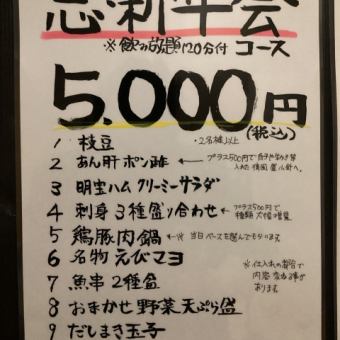 忘新年会
※飲み放題120分付 コース
5.000円
(税込)
・2名様以上
1 枝豆
2 あん肝ポン酢 ← プラス500円で
3 明宝ハム クリーミーサラダ
4 刺身3種盛り合わせ ← プラス500円で
種類 大幅増量
5 鶏豚肉鍋 ←※ 当日ベースを選んでもらいます
6 名物えびマヨ
※仕入れの都合で
内容 変わる事が
あります。
7 魚串2種盛
8 おまかせ野菜天ぷら盛
9 だしまき玉子